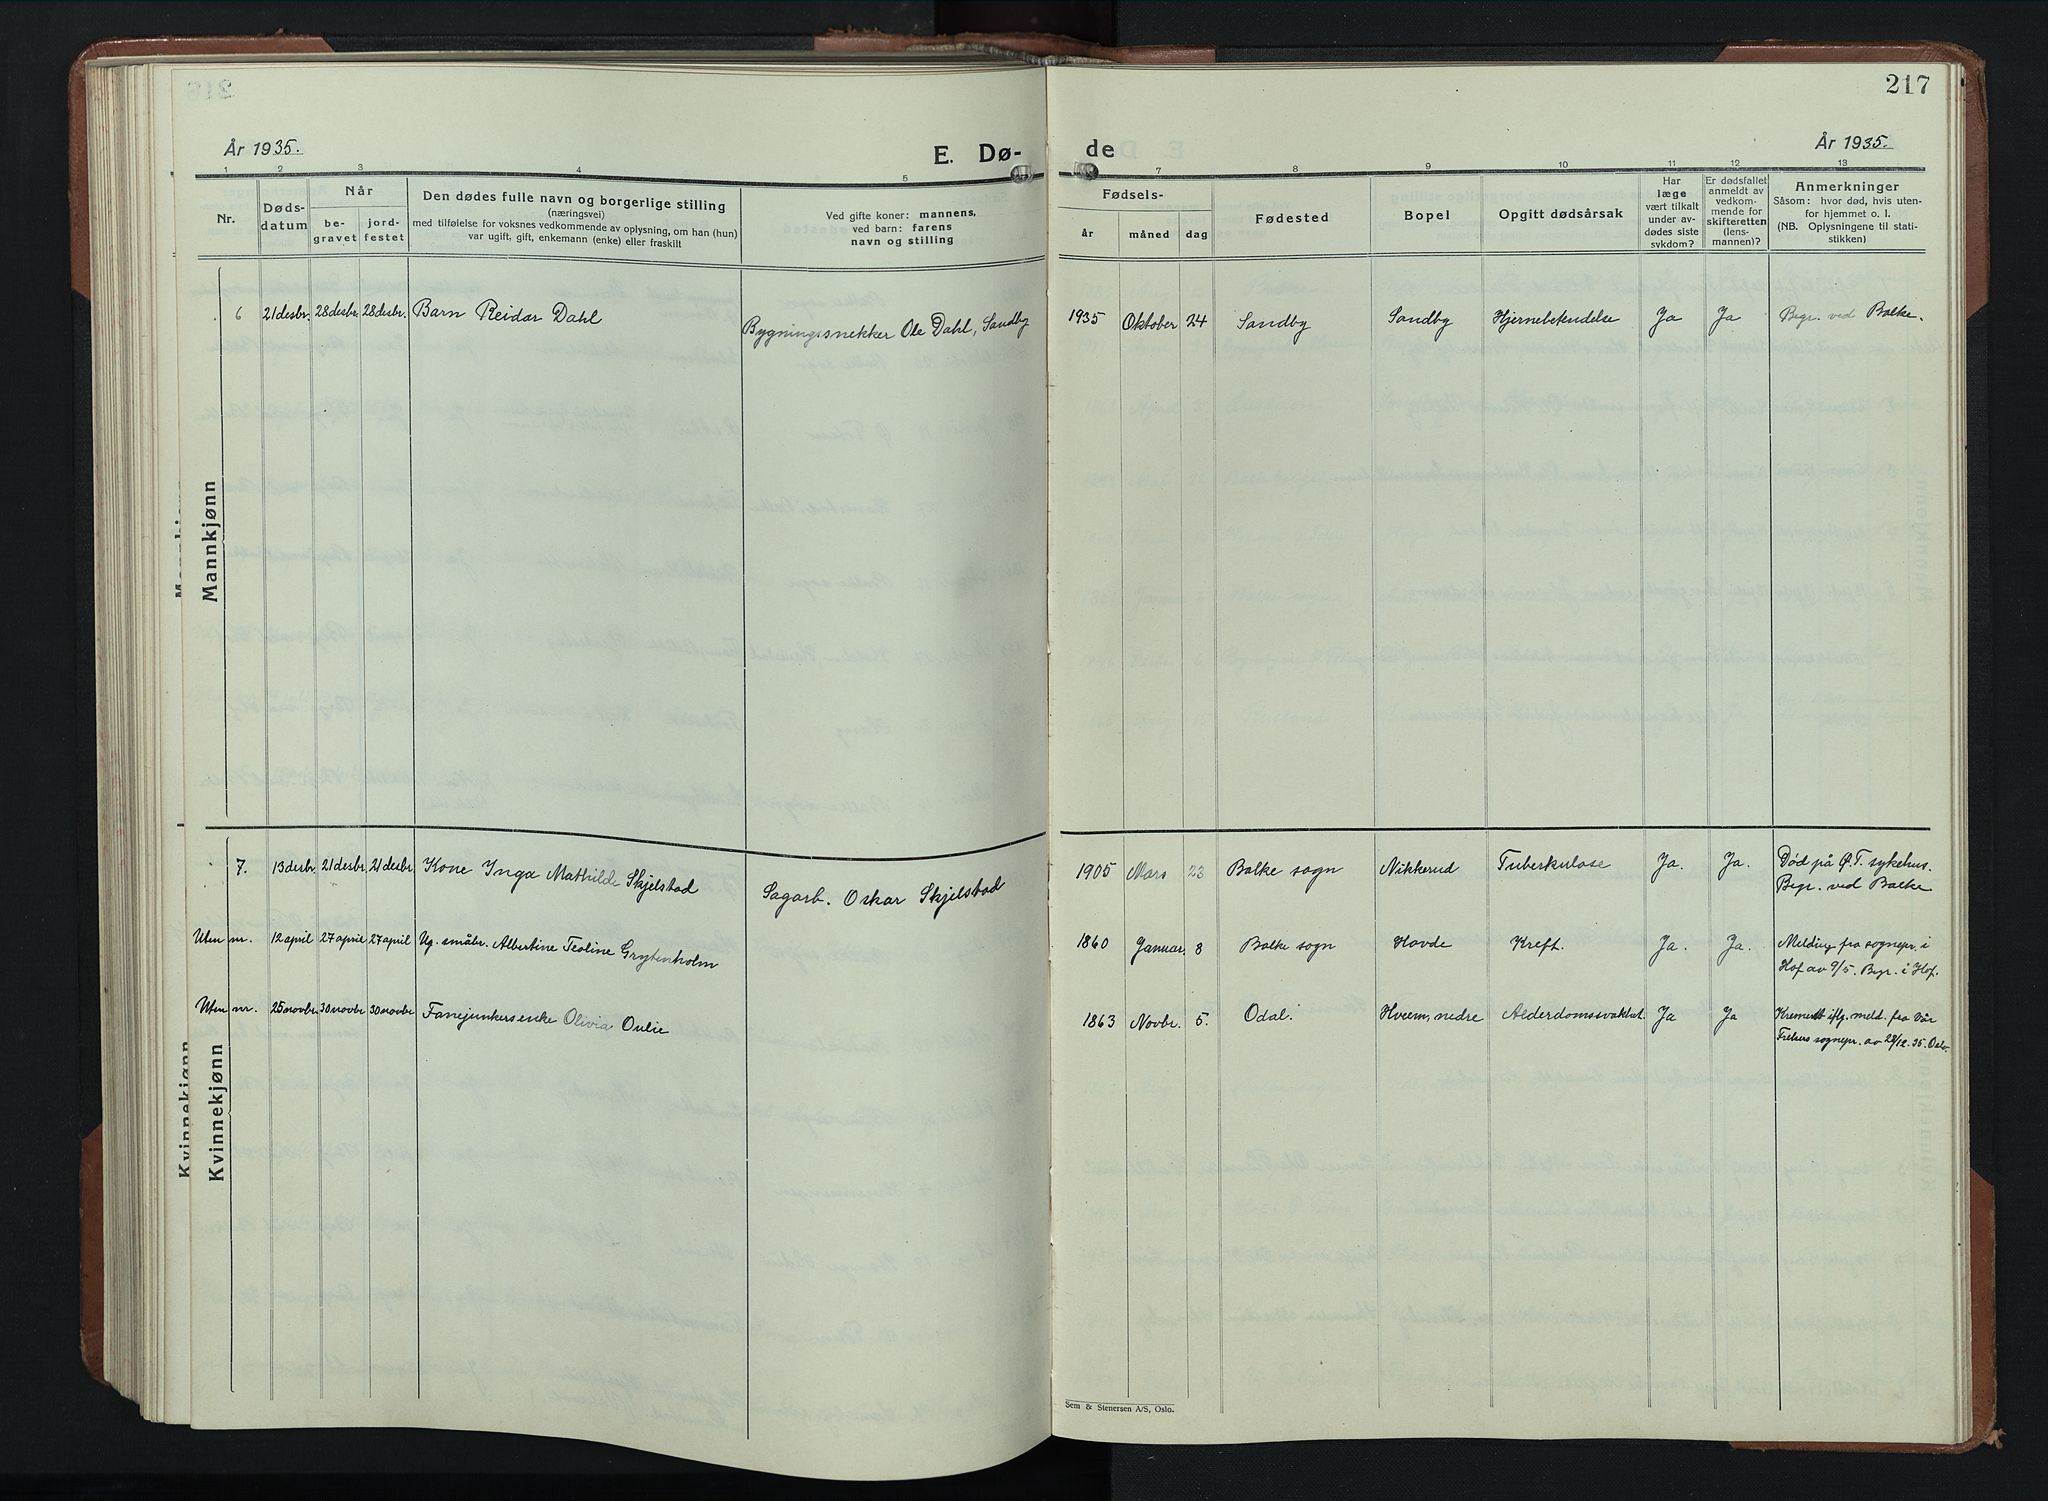 217
År 1935.
E. Dø-
de
År 1935.
1 2 3 4 5 7 8 9 10 11 12 13
Nr.
Døds-
datum
Når
be-
gravet
jord-
festet
Den dødes fulle navn og borgerlige stilling
(næringsvei)
med tilføielse for voksnes vedkommende av oplysning, om han (hun)
var ugift, gift, enkemann (enke) eller fraskilt
Ved gifte koner: mannens,
ved barn: farens
navn og stilling
Fødsels-
år
måned
dag
Fødested
Bopel
Opgitt dødsårsak
Har
læge
vært tilkalt
under av-
dødes siste
sykdom?
Er dødsfallet
anmeldt av
vedkom-
mende for
skifteretten
(lens-
mannen)?
Anmerkninger
Såsom: hvor død, hvis uten-
for hjemmet o. l.
(NB. Oplysningene til stati-
stikken)
Mannkjønn
6 21 desbr. 28 desbr. 28 desbr. Barn Reidar Dahl
Bygningssnekker Ole Dahl, Sandby
1935 Oktober 24 Sandby Sandby Hjernebetendelse Ja Ja Begr. ved Balke.
Kvinnekjønn
7. 13 desbr. 21 desbr. 21 desbr. Kone Inga Mathilde Skjelstad
Sagarb. Oskar Skjelstad
1905 Mars 23 Balke sogn Nikkerud Tuberkulose Ja. Ja. Død på Ø.T. sykehus.
Begr. ved Balke
Uten nr. 12 april 27 april 27 april Ug. småbr. Albertine Teoline Grytenholm
1860 Januar. 8 Balke sogn Hovde Kreft. Ja. Ja. Melding fra sognepr. i
Hof av 9/5. Begr. i Hof.
Uten nr. 25 novbr. 30 novbr. 30 novbr. Fanejunkersenke Olivia Oulie
1863 Novbr. 5. Odal. Hveem, nedre Alderdomssvakhet. Ja Ja Kremert iflg. meld. fra Vår
Frelsers sognepr. av 28/12.35. Oslo.
Sem & Stenersen A/S, Oslo.